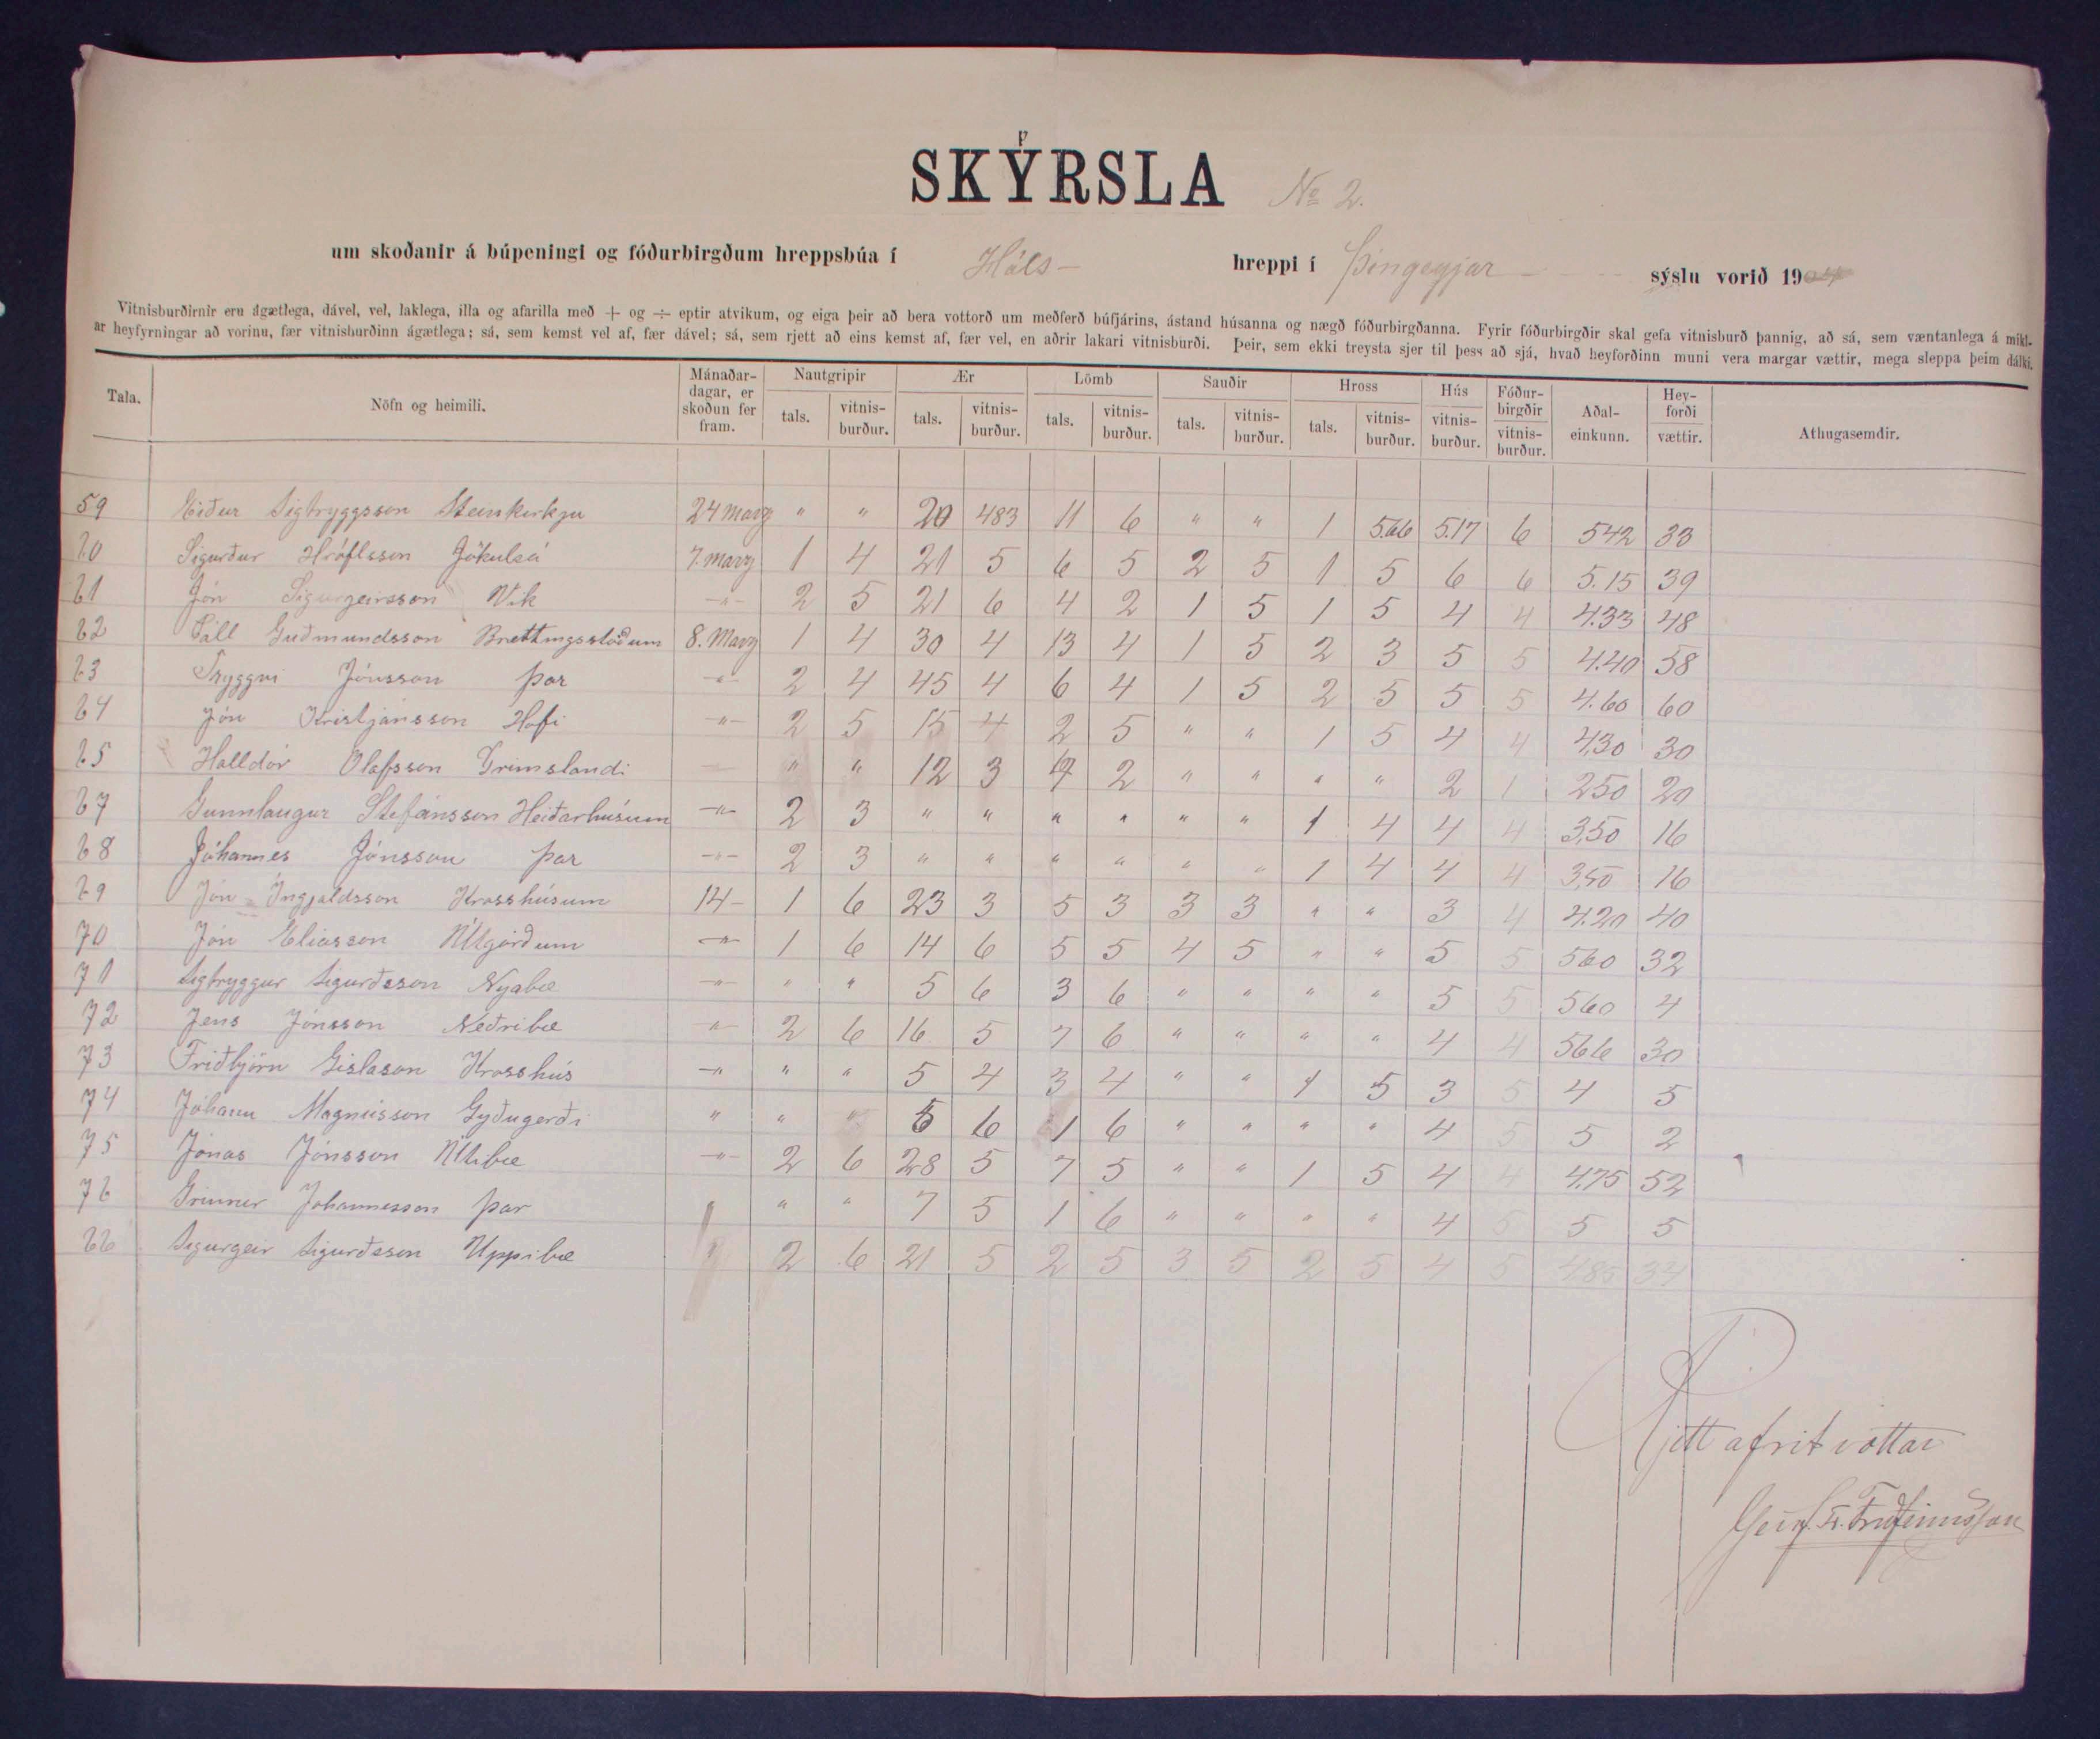 SKÝRSLA No 2.
um skoðanir á búpeningi og fóðurbirgðum hreppsbúa í Háls- hreppi í Þingeyjar sýslu vorið 1904
Vitnisburðirnir eru ágætlega, dável, vel, laklega, illa og afarilla með + og ÷ eptir atvikum, og eiga þeir að bera vottorð um meðferð búfjárins, ástand húsanna og nægð fóðurbirgðanna. Fyrir fóðurbirgðir skal gefa vitnisburð þannig, að sá, sem væntanlega á mikl-
ar heyfyrningar að vorinu, fær vitnisburðinn ágætlega; sá, sem kemst vel af, fær dável; sá, sem rjett að eins kemst af, fær vel, en aðrir lakari vitnisburði. Þeir, sem ekki treysta sjer til þess að sjá, hvað heyforðinn muni vera margar vættir, mega sleppa þeim dálki.
Tala. Nöfn og heimili. Mánaðar-dagar, er skoðun fer fram. Nautgripir Ær Lömb Sauðir Hross Hús Fóður-birgðir Aðal-einkunn. Hey-forði Athugasemdir.
tals. vitnis-burður. tals. vitnis-burður. tals. vitnis-burður. tals. vitnis-burður. tals. vitnis-burður. vitnis-burður. vitnis-burður. vættir.
59 Eiður Sigtryggsson Steinkirkju 24 marz " " 20 483 11 6 " " 1 5.66 5.17 6 542 33
60 Sigurður Hróflsson Jökulsá 7. marz 1 4 21 5 6 5 2 5 1 5 6 6 5.15 39
61 Jón Sigurgeirsson Vik -"- 2 5 21 6 4 2 1 5 1 5 4 4 4.33 48
62 Páll Guðmundsson Brettingsstöðum 8. Marz 1 4 30 4 13 4 1 5 2 3 5 5 4.40 58
63 Tryggvi Jónsson þar -"- 2 4 45 4 6 4 1 5 2 5 5 5 4.60 60
64 Jón Kristjánsson Hofi -"- 2 5 15 4 2 5 " " 1 5 4 4 4,30 30
65 Halldór Olafsson Grimslandi " " 12 3 4 2 " " " " 2 1 250 20
67 Gunnlaugur Stefánsson Heiðarhúsum -"- 2 3 " " " " " " 1 4 4 4 3,50 16
68 Jóhannes Jónsson þar -"- 2 3 " " " " " " 1 4 4 4 3,50 16
69 Jón Ingjaldsson Krosshúsum 14- 1 6 23 3 5 3 3 3 " " 3 4 4.20 40
70 Jón Eliasson Útgörðum -"- 1 6 14 6 5 5 4 5 " " 5 5 560 32
71 Sigtryggur Sigurðsson Nyabæ -"- " " 5 6 3 6 " " " " 5 5 560 4
72 Jens Jónsson Neðribæ -"- 2 6 16 5 7 6 " " " " 4 4 566 30
73 Friðbjörn Gislason Krosshús -"- " " 5 4 3 4 " " 1 5 3 5 4 5
74 Jóhann Magnússon Gyðugerði " " " 5 6 1 6 " " " " 4 5 5 2
75 Jónas Jónsson Útibæ -"- 2 6 28 5 7 5 " " 1 5 4 4 4.75 52
76 Jóhannesson þar " " 7 5 1 6 " " " " 4 5 5 5
66 Sigurgeir Sigurðsson Uppibæ 2 6 21 5 2 5 3 5 2 5 4 5 4.85 34
Rjett afrit vottar